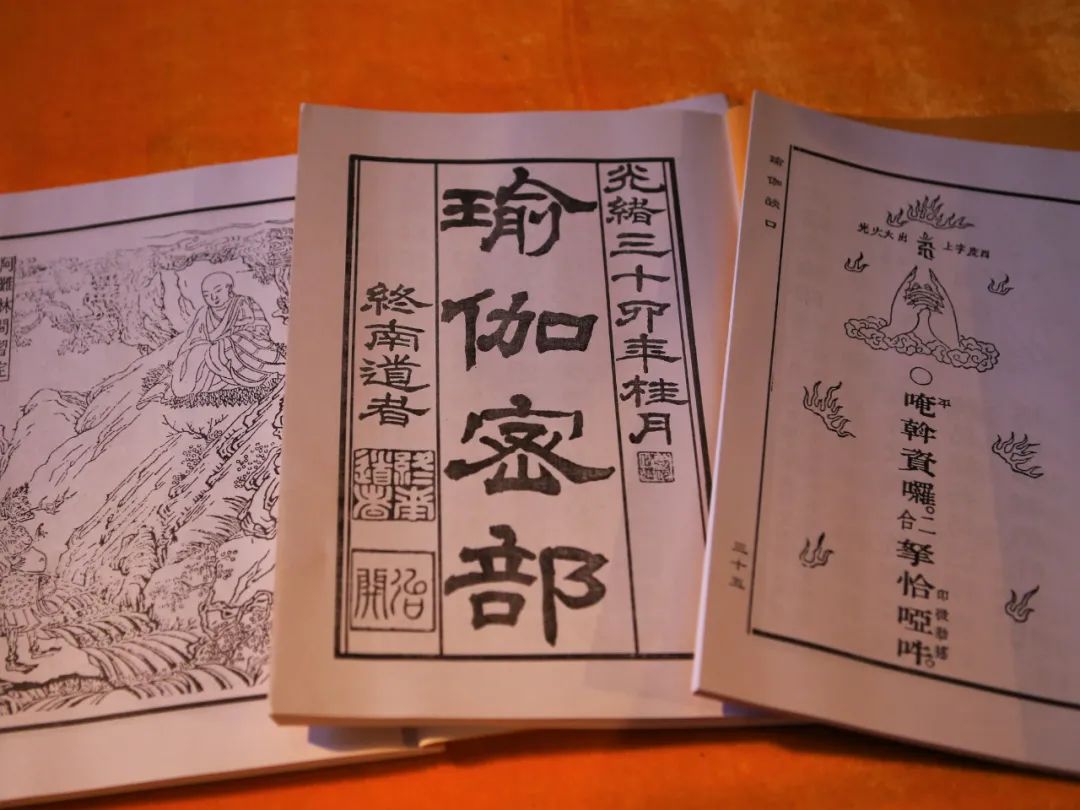 阿難林間習定
光緒三十卯年桂月
瑜伽密部
終南道者
終南道者
冶開
瑜伽燄口
字上出大火光
唵斡資囉。二合拏恰啞吽。
平
三十五